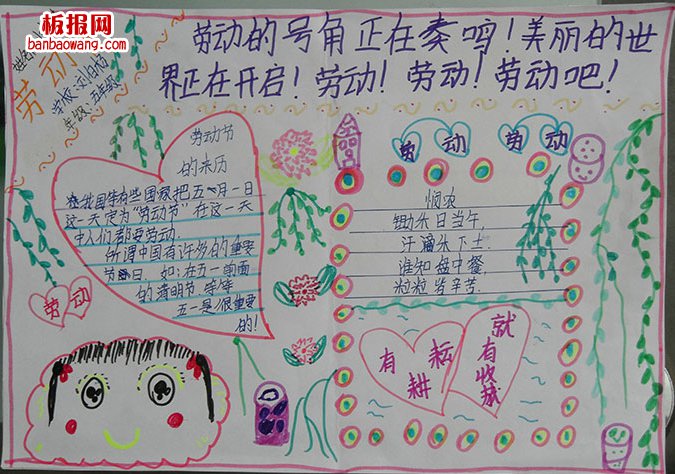 板报网
banbaowang.com
劳动的号角正在奏鸣！美丽的世
界正在开启！劳动！劳动！劳动吧！
姓名
劳动
年级：五年级
劳动节
的来历
在我国和有些国家把五月一日
这一天定为“劳动节”在这一天
中人们都要劳动.
所谓中国有许多的重要
节日. 如：在五一前面
的清明节 等等
五一是很重要
的！
劳动
劳动 劳动
悯农
锄禾日当午
汗滴禾下土.
谁知盘中餐
粒粒皆辛苦.
有耕耘
就有收获